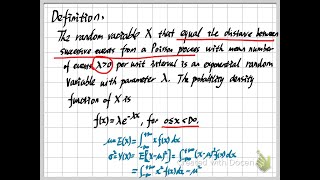 Definition.
The random variable X that equal the distance between
successive events from a Poisson process with mean number
of events λ>0 per unit interval is an exponential random
variable with parameter λ. The probability density
function of X is
f(x) = λe^{-λx}, for 0≤x<∞.
μ=E(X)=∫_{-∞}^{+∞} x f(x) dx
σ²=V(X)=E[(X-μ)²]=∫_{-∞}^{+∞} (x-μ)² f(x) dx
=∫_{-∞}^{+∞} x² f(x) dx - μ²